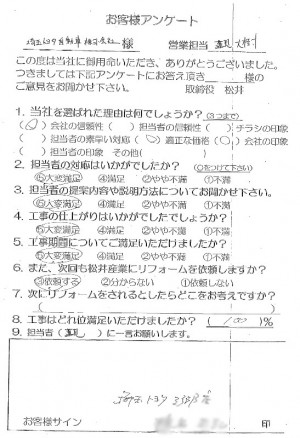 お客様アンケート
埼玉トヨタ自動車株式会社 様 営業担当
この度は当社に御用命いただき、ありがとうございました。
つきましては下記アンケートにお答え頂き 様の
ご意見をお聞かせ下さい。 取締役 松井
1. 当社を選ばれた理由は何でしょうか? (3つまで)
( )会社の信頼性( )担当者の信頼性( )チラシの印象
( )担当者の素早い対応( )適正な価格( )会社の印象
( )担当者の印象 その他( )
2. 担当者の対応はいかがでしたか? (○をつけて下さい)
⑤大変満足 ④満足 ②やや不満 ①不満
3. 担当者の提案内容や説明方法についてお聞かせ下さい。
⑤大変満足 ④満足 ②やや不満 ①不満
4. 工事の仕上がりはいかがでしたでしょうか?
⑤大変満足 ④満足 ②やや不満 ①不満
5. 工事期間についてご満足いただけましたか?
⑤大変満足 ④満足 ②やや不満 ①不満
6. また、次回も松井産業にリフォームを依頼しますか?
③依頼する ②分からない ①依頼しない
7. 次にリフォームをされるとしたらどこをお考えですか?
( )
8. 工事はどれ位満足いただけましたか? (100)%
9. 担当者( )に一言お願いします。
埼玉トヨタ
お客様サイン 印